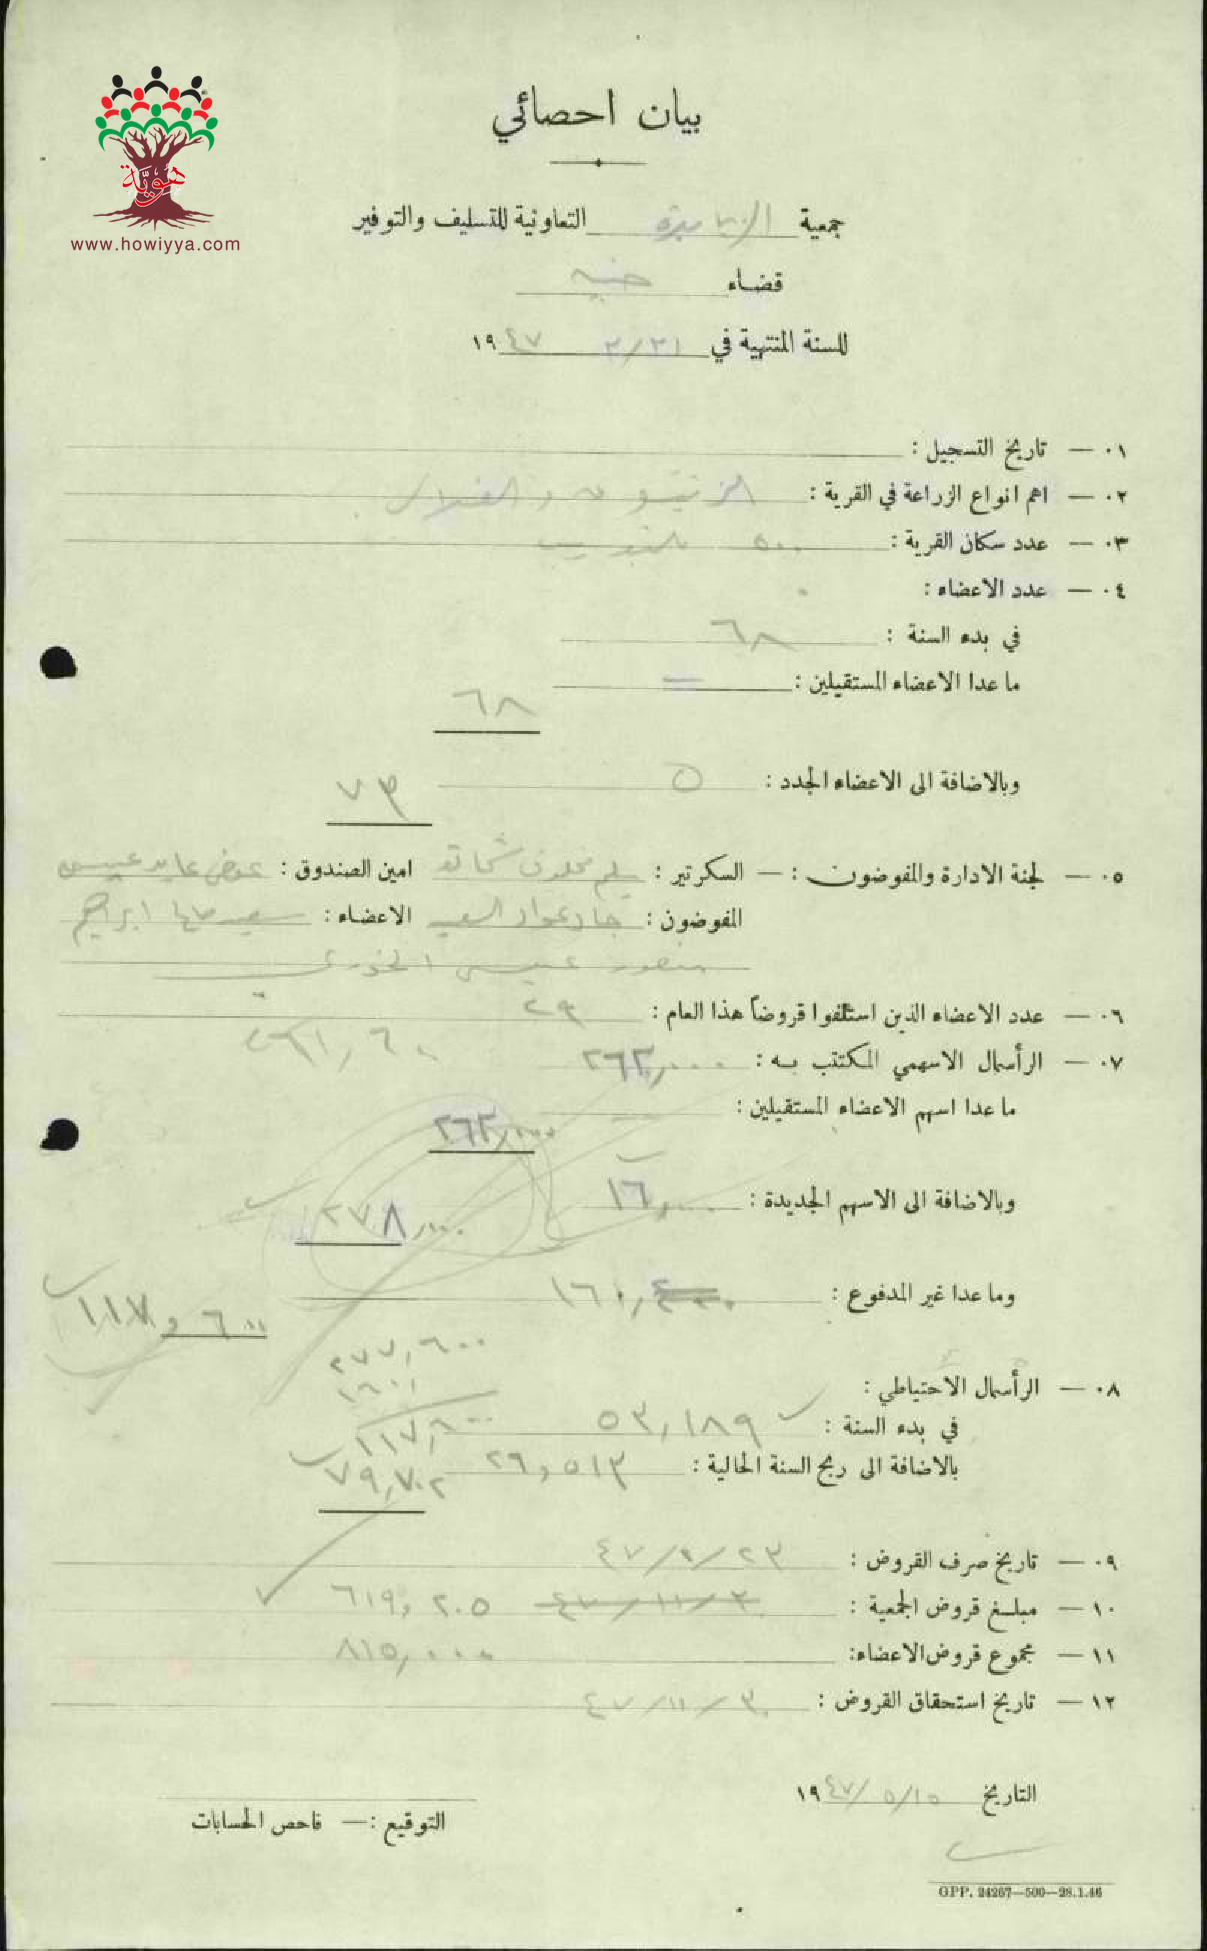 هوية
www.howiyya.com
بيان احصائي
جمعية التعاونية للتسليف والتوفير
قضاء
للسنة المنتهية في ٣١/٣ ١٩٤٧
٠١ — تاريخ التسجيل :
٠٢ — اهم انواع الزراعة في القرية : الزيتون و الغلال
٠٣ — عدد سكان القرية : ٥٠٠ بالتقريب
٠٤ — عدد الاعضاء :
في بدء السنة : ٦٨
ما عدا الاعضاء المستقيلين : —
٦٨
وبالاضافة الى الاعضاء الجدد : ٥
٧٣
٠٥ — لجنة الادارة والمفوضون : — السكرتير : امين الصندوق : عوض عايد عيسى
المفوضون : جاد عواد السعيد الاعضاء : سعيد ابراهيم
منصور عيسى الخوري
٠٦ — عدد الاعضاء الذين استلفوا قروضاً هذا العام : ٢٩
٠٧ — الرأسمال الاسهمي المكتتب به : ٢٦٢,٠٠٠
ما عدا اسهم الاعضاء المستقيلين :
٢٦٢,٠٠٠
وبالاضافة الى الاسهم الجديدة : ١٦,٠٠٠
٢٧٨,٠٠٠
وما عدا غير المدفوع :
١١٧,٦٠٠
٢٧٧,٦٠٠
٠٨ — الرأسمال الاحتياطي :
في بدء السنة : ٥٣,١٨٩
بالاضافة الى ربح السنة الحالية : ٢٦,٥١٣
٧٩,٧٠٢
٠٩ — تاريخ صرف القروض :
١٠ — مبلغ قروض الجمعية : ٣٠/١١/٤٧ ٦١٩,٢٠٥
١١ — مجموع قروض الاعضاء: ٨١٥,٠٠٠
١٢ — تاريخ استحقاق القروض : ٣٠/١١/٤٧
التاريخ ١٥/٥/١٩٤٧
التوقيع : — فاحص الحسابات
GPP. 24267—500—28.1.46